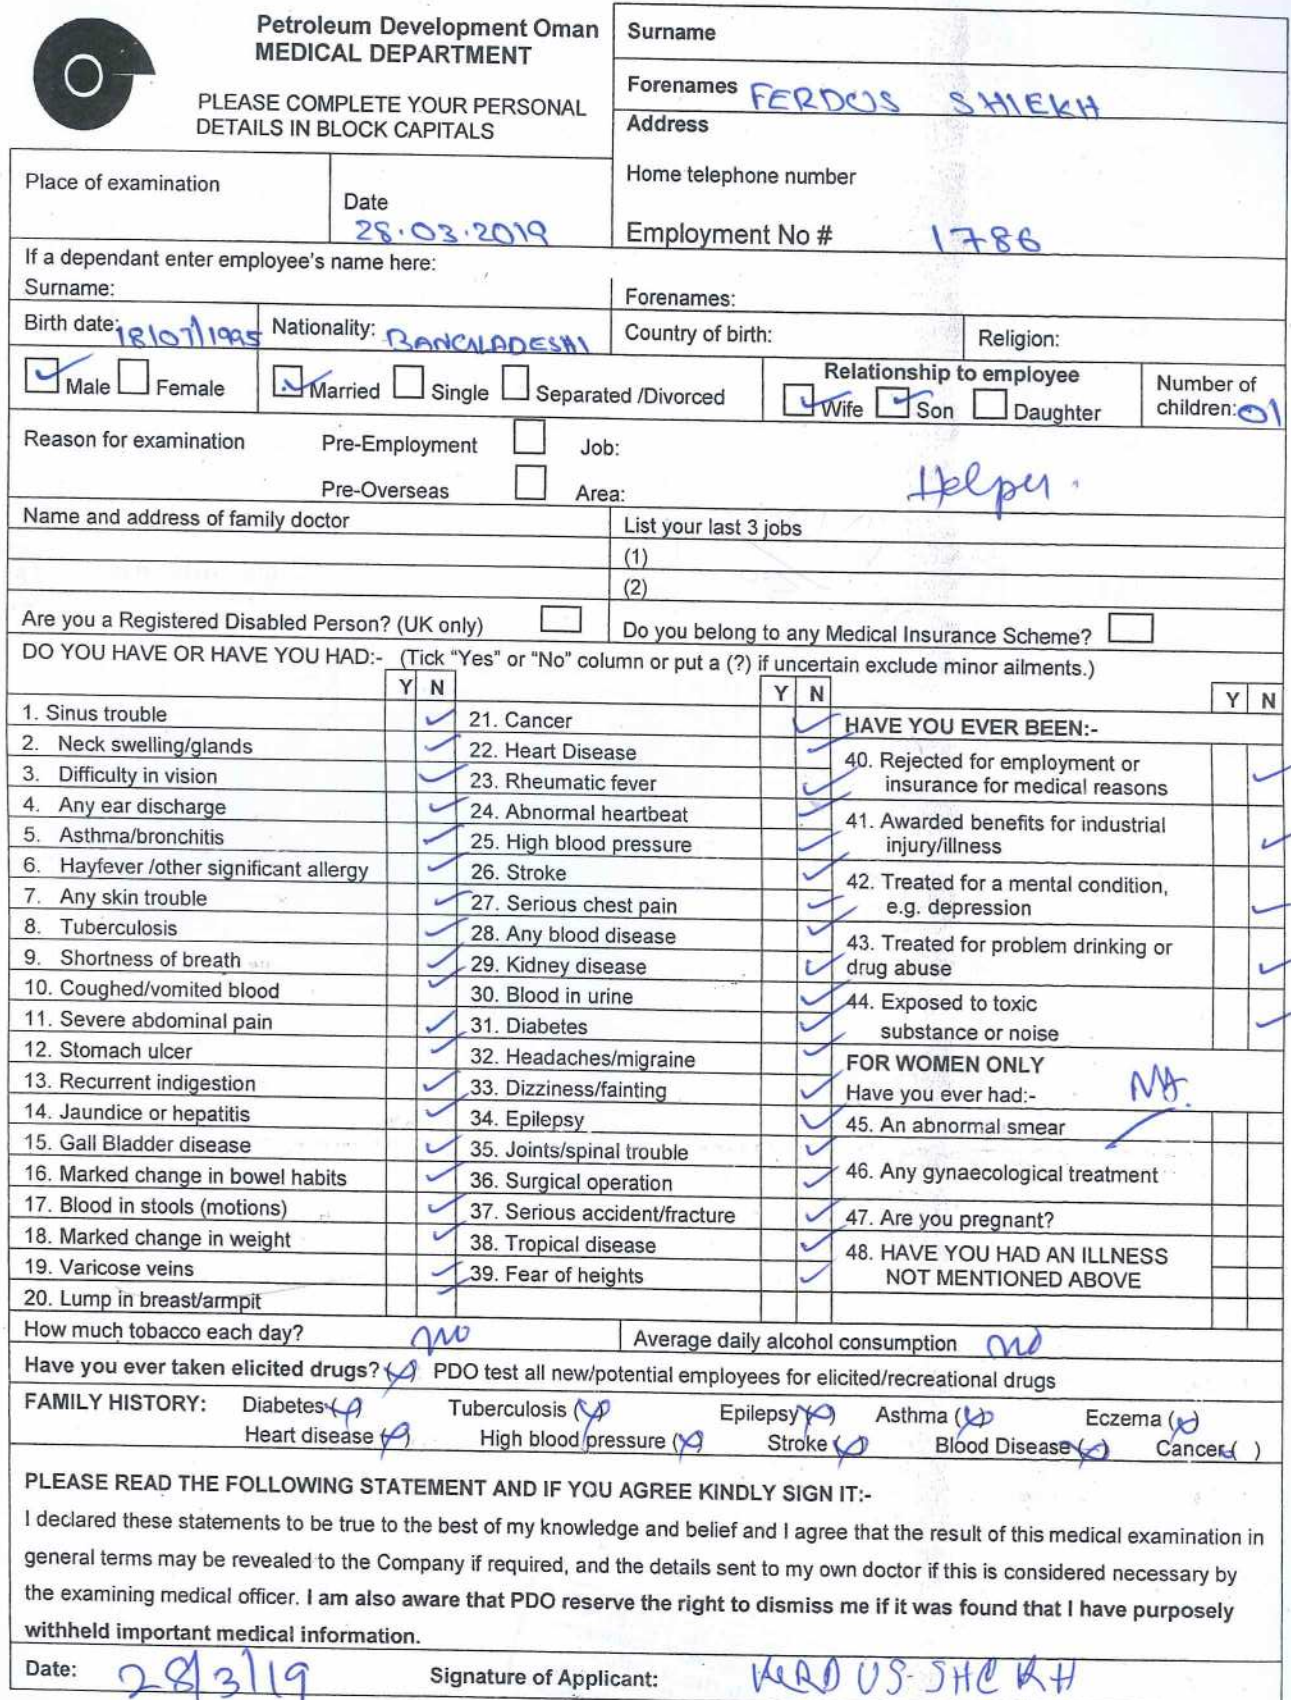 Petroleum Development Oman
MEDICAL DEPARTMENT
PLEASE COMPLETE YOUR PERSONAL
DETAILS IN BLOCK CAPITALS
Surname
Forenames FERDOUS SHIEKH
Address
Home telephone number
Employment No # 1786
Place of examination
Date
28.03.2019
If a dependant enter employee's name here:
Surname:
Forenames:
Birth date: 18/07/1995 Nationality: BANGLADESHI Country of birth: Religion:
Male Female Married Single Separated /Divorced
Relationship to employee
Wife Son Daughter
Number of
children: 01
Reason for examination Pre-Employment Job:
Helper.
Pre-Overseas Area:
Name and address of family doctor
List your last 3 jobs
(1)
(2)
Are you a Registered Disabled Person? (UK only) Do you belong to any Medical Insurance Scheme?
DO YOU HAVE OR HAVE YOU HAD:- (Tick "Yes" or "No" column or put a (?) if uncertain exclude minor ailments.)
Y N
1. Sinus trouble
2. Neck swelling/glands
3. Difficulty in vision
4. Any ear discharge
5. Asthma/bronchitis
6. Hayfever /other significant allergy
7. Any skin trouble
8. Tuberculosis
9. Shortness of breath
10. Coughed/vomited blood
11. Severe abdominal pain
12. Stomach ulcer
13. Recurrent indigestion
14. Jaundice or hepatitis
15. Gall Bladder disease
16. Marked change in bowel habits
17. Blood in stools (motions)
18. Marked change in weight
19. Varicose veins
20. Lump in breast/armpit
Y N
21. Cancer
22. Heart Disease
23. Rheumatic fever
24. Abnormal heartbeat
25. High blood pressure
26. Stroke
27. Serious chest pain
28. Any blood disease
29. Kidney disease
30. Blood in urine
31. Diabetes
32. Headaches/migraine
33. Dizziness/fainting
34. Epilepsy
35. Joints/spinal trouble
36. Surgical operation
37. Serious accident/fracture
38. Tropical disease
39. Fear of heights
Y N
HAVE YOU EVER BEEN:-
40. Rejected for employment or
insurance for medical reasons
41. Awarded benefits for industrial
injury/illness
42. Treated for a mental condition,
e.g. depression
43. Treated for problem drinking or
drug abuse
44. Exposed to toxic
substance or noise
FOR WOMEN ONLY
Have you ever had:- NA.
45. An abnormal smear
46. Any gynaecological treatment
47. Are you pregnant?
48. HAVE YOU HAD AN ILLNESS
NOT MENTIONED ABOVE
How much tobacco each day? no Average daily alcohol consumption no
Have you ever taken elicited drugs? ( ) PDO test all new/potential employees for elicited/recreational drugs
FAMILY HISTORY: Diabetes ( ) Tuberculosis ( ) Epilepsy ( ) Asthma ( ) Eczema ( )
Heart disease ( ) High blood pressure ( ) Stroke ( ) Blood Disease ( ) Cancer ( )
PLEASE READ THE FOLLOWING STATEMENT AND IF YOU AGREE KINDLY SIGN IT:-
I declared these statements to be true to the best of my knowledge and belief and I agree that the result of this medical examination in
general terms may be revealed to the Company if required, and the details sent to my own doctor if this is considered necessary by
the examining medical officer. I am also aware that PDO reserve the right to dismiss me if it was found that I have purposely
withheld important medical information.
Date: 28/3/19 Signature of Applicant: